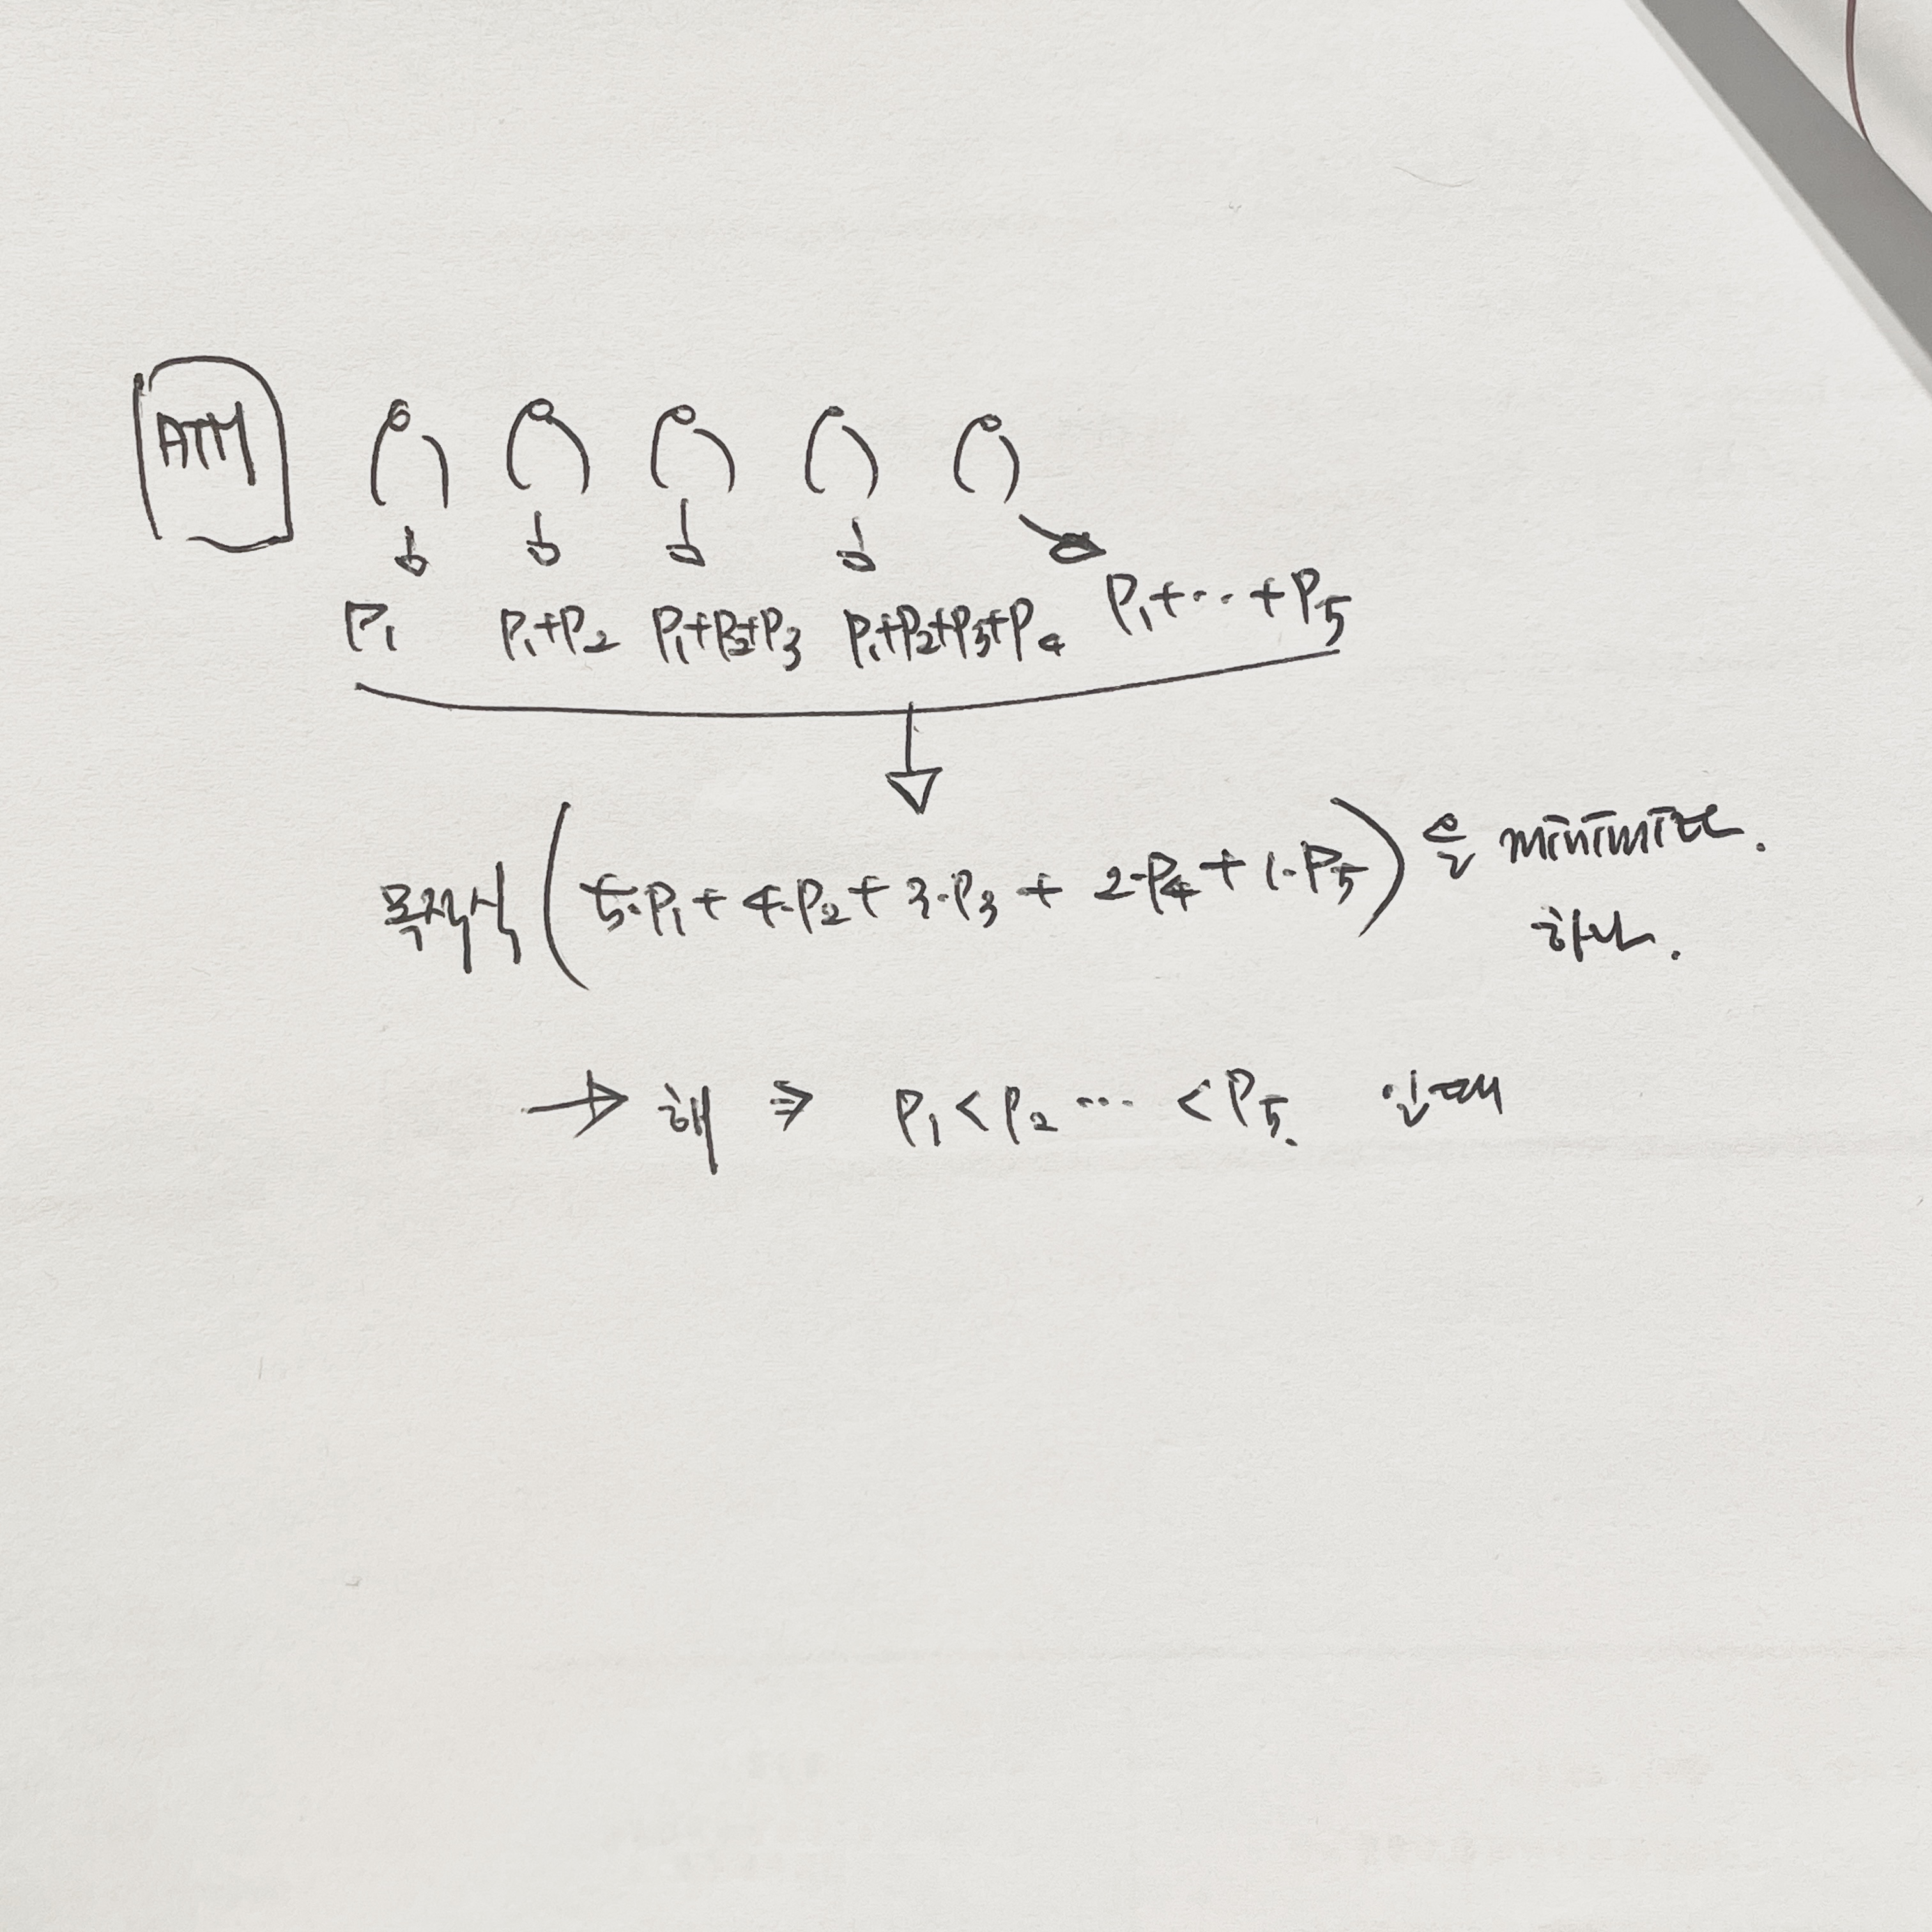 ATM
P₁ P₁+P₂ P₁+P₂+P₃ P₁+P₂+P₃+P₄ P₁+⋯+P₅
목적식 (5·P₁+4·P₂+3·P₃+2·P₄+1·P₅)을 minimize.
하라.
→ 해 ⇒ P₁<P₂⋯<P₅. 인때